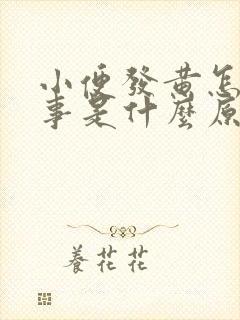 小便發黄怎
事是什麼原
養花花